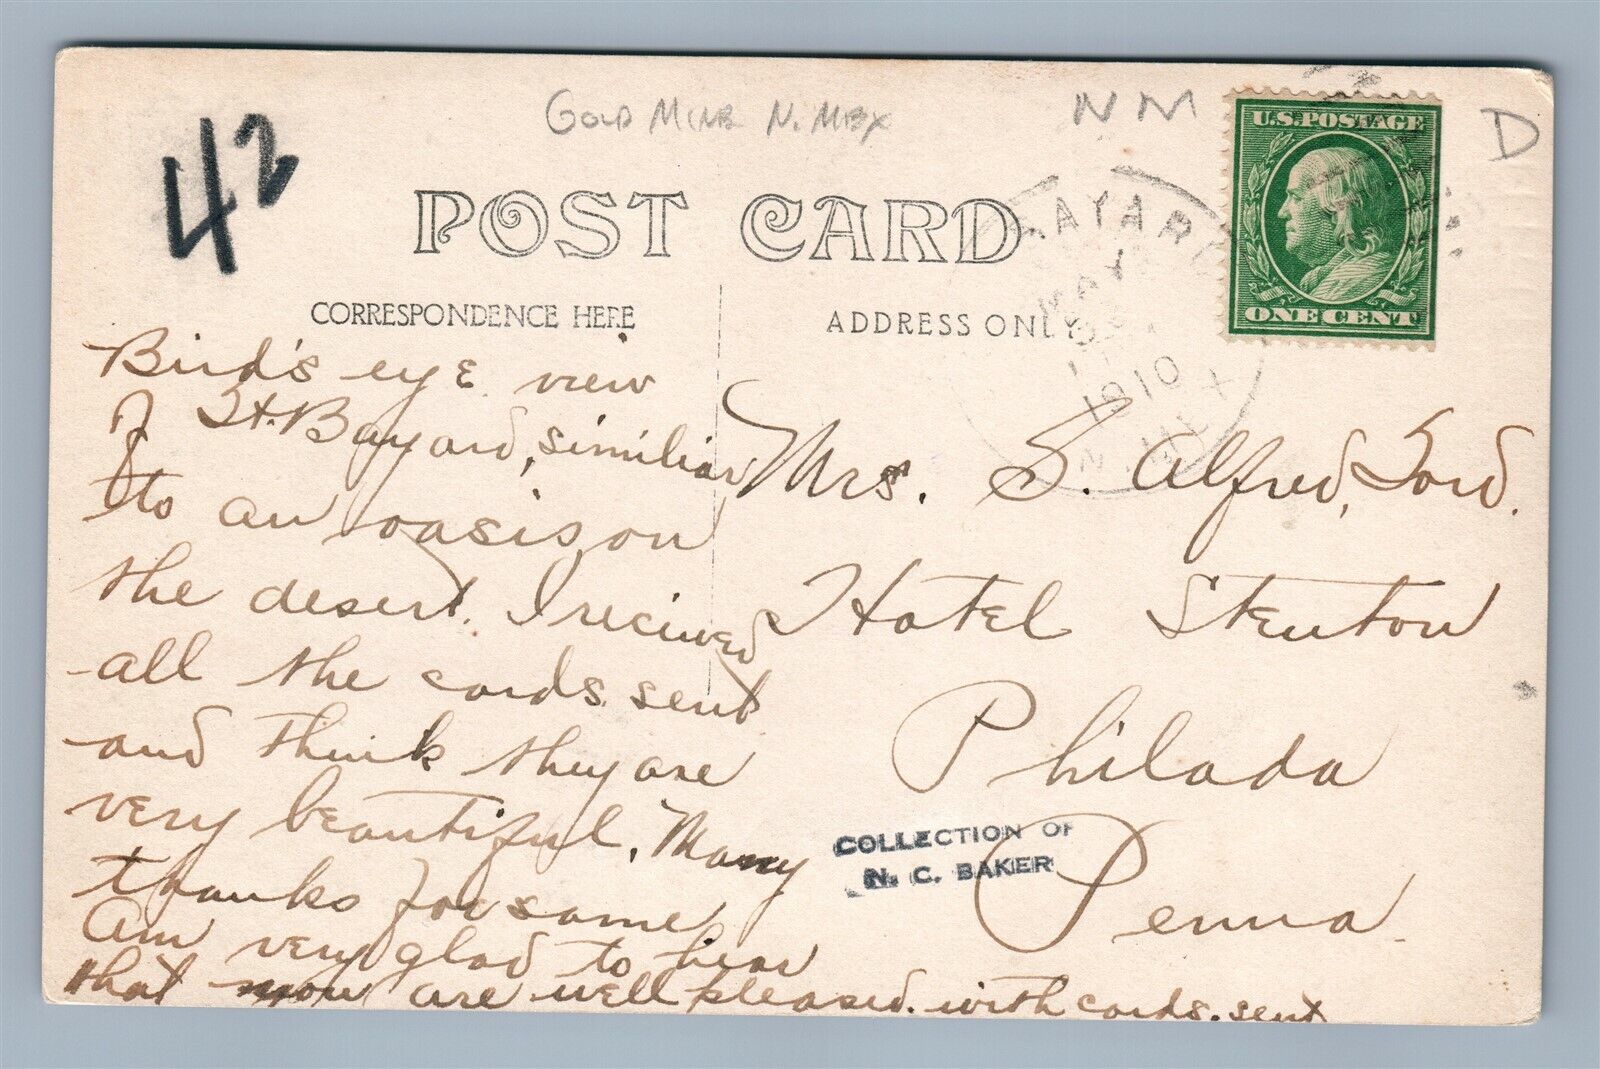 GOLD MINE N. MEX
N M
D
42
U.S. POSTAGE
ONE CENT
POST CARD
BAYARD
MAY
1910
N. MEX
CORRESPONDENCE HERE
ADDRESS ONLY
Bird's eye view
of Ft. Bayard, similiar
to an oasis, on
the desert. I recieved
all the cards sent
and think they are
very beautiful. Many
thanks for same
Am very glad to hear
that you are well pleased with cards sent
Mrs. S. Alfred,
Hotel Stenton
Philada
Penna.
COLLECTION OF
N. C. BAKER